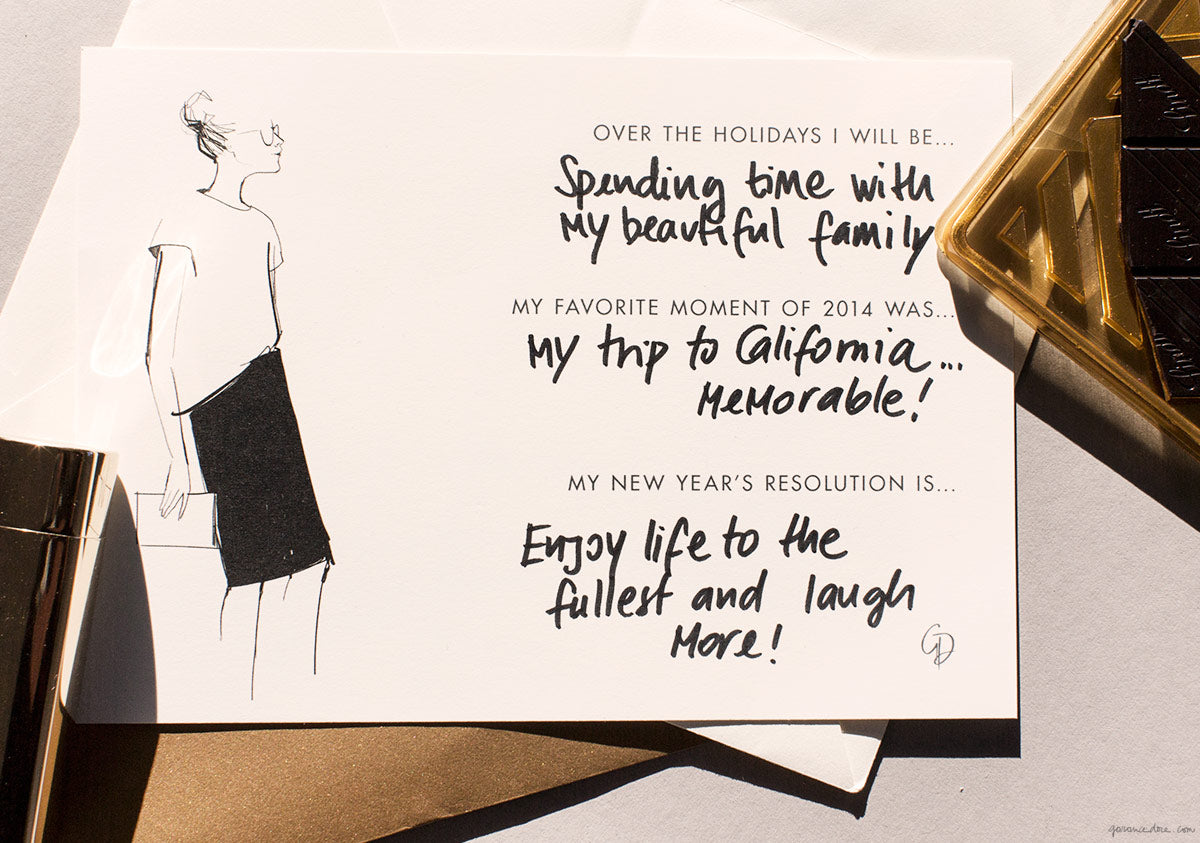 OVER THE HOLIDAYS I WILL BE...
Spending time with
my beautiful family
MY FAVORITE MOMENT OF 2014 WAS...
My trip to California...
Memorable!
MY NEW YEAR'S RESOLUTION IS...
Enjoy life to the
fullest and laugh
More!
GD
garancedore.com